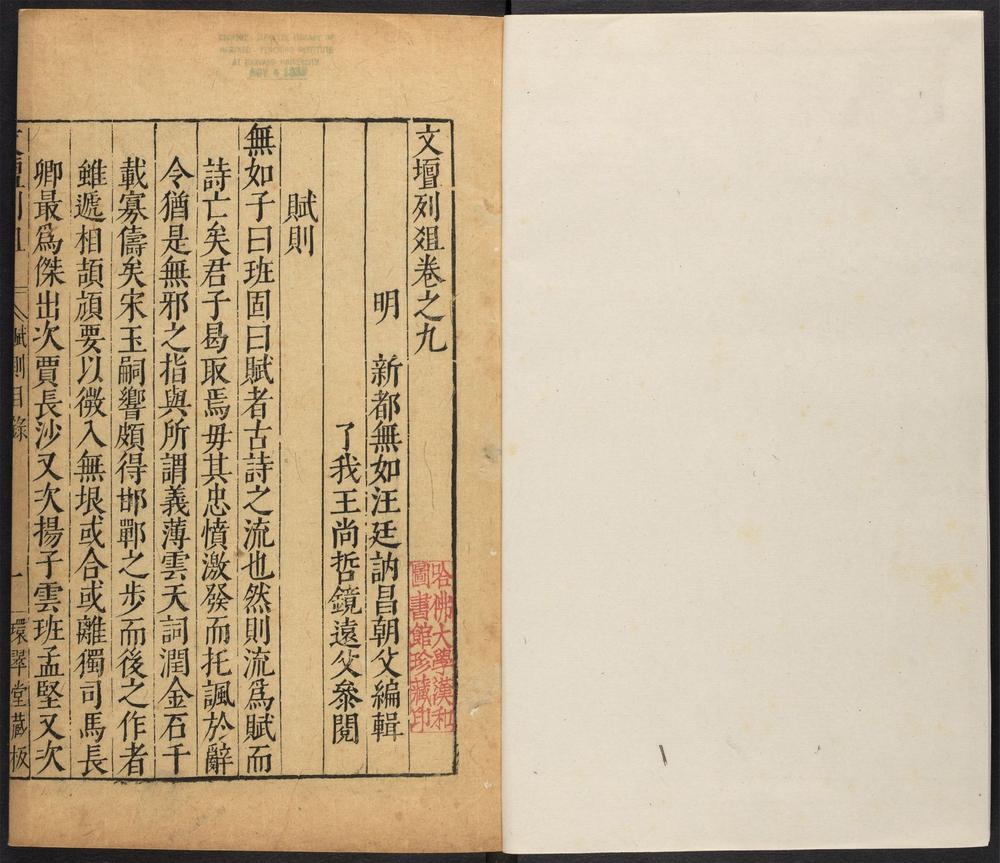 文壇列爼卷之九
明　新都無如汪廷訥昌朝父編輯
了我王尚哲鏡遠父叅閱
賦則
無如子曰班固曰賦者古詩之流也然則流爲賦而
詩亡矣君子曷取焉毋其忠憤激發而托諷於辭
令猶是無邪之指與所謂義薄雲天詞潤金石千
載寡儔矣宋玉嗣響頗得邯鄲之步而後之作者
雖遞相頡頏要以微入無垠或合或離獨司馬長
卿最爲傑出次賈長沙又次揚子雲班孟堅又次
文壇列爼
賦則目錄
一
環翠堂藏板
哈佛大學漢和
圖書館珍藏印
CHINESE - JAPANESE LIBRARY OF
HARVARD - YENCHING INSTITUTE
AT HARVARD UNIVERSITY